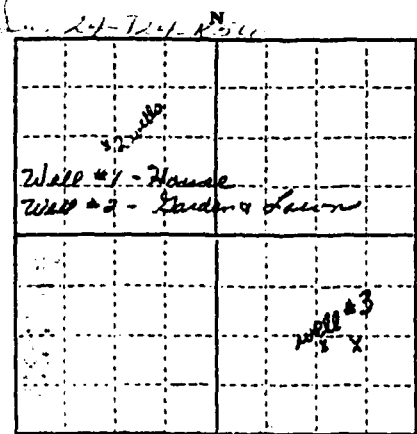 N
24-T24-R36
x 2 wells
Well #1 - House
Well #2 - Garden & Lawn
well #3
x x